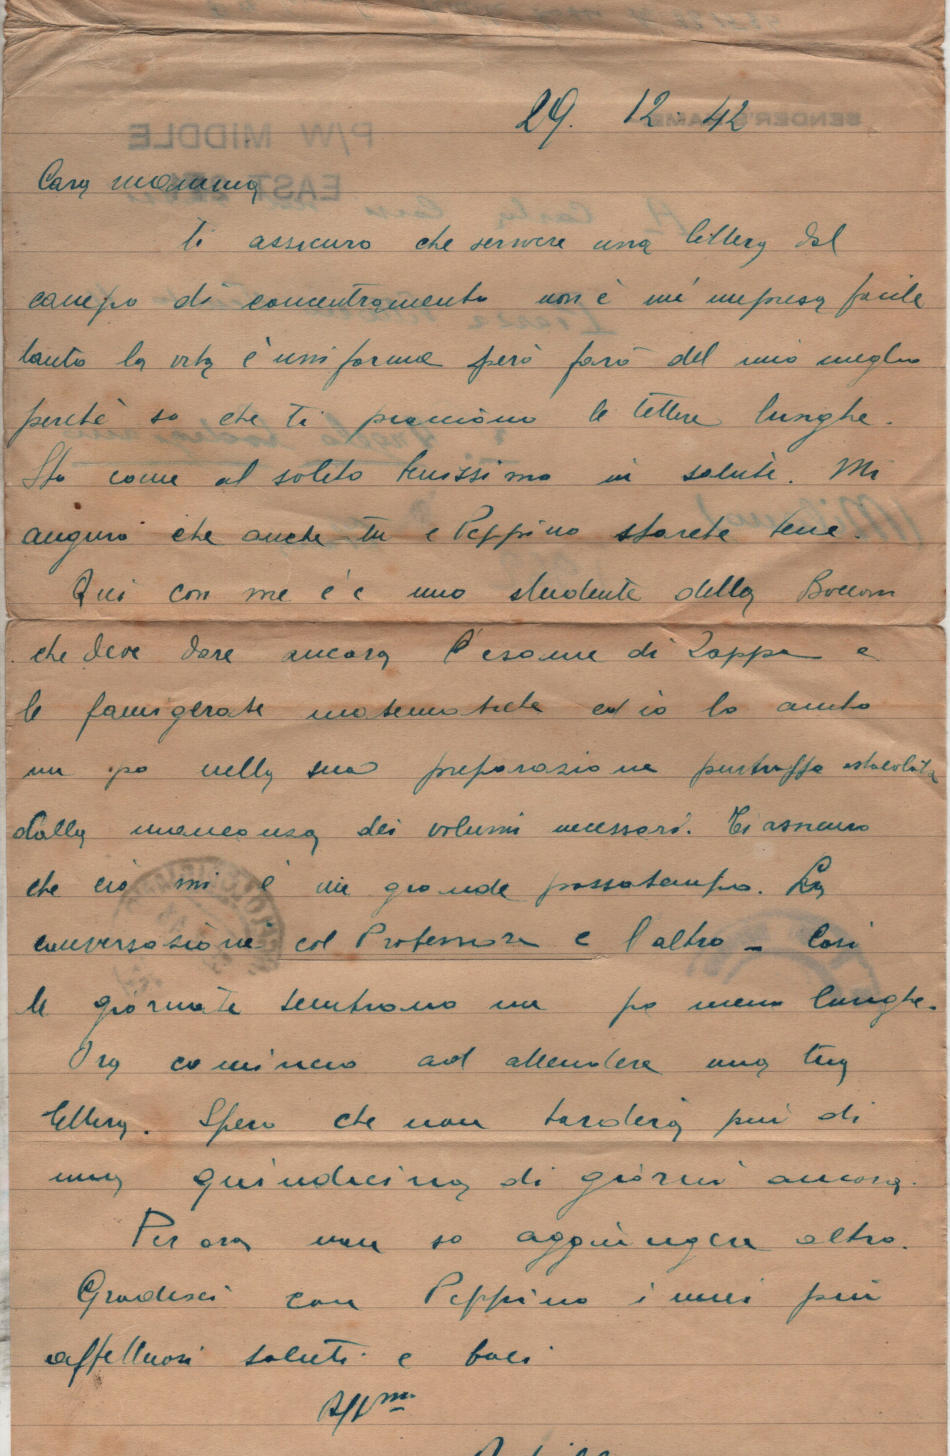 29. 12. 42
Cara mamma
ti assicuro che scrivere una lettera dal
campo di concentramento non è un'impresa facile
tanto la vita è uniforme però farò del mio meglio
perché so che ti piacciono le lettere lunghe.
Sto come al solito benissimo in salute. Mi
auguro che anche tu e Peppino starete bene.
Qui con me c'è uno studente della Bocconi
che deve dare ancora l'esame di Zappa e
le famigerate matematiche ed io lo aiuto
un po nella sua preparazione purtroppo ostacolata
dalla mancanza dei volumi necessari. Ti assicuro
che ciò mi è un grande passatempo. La
conversazione col Professore è l'altro - Così
le giornate sembrano un po meno lunghe.
Ora comincio ad attendere una tua
lettera. Spero che non tarderà più di
una quindicina di giorni ancora.
Per ora non so aggiungere altro.
Gradisci con Peppino i miei più
affettuosi saluti e baci
Aff.mo
P/W MIDDLE
EAST
SENDER'S NAME